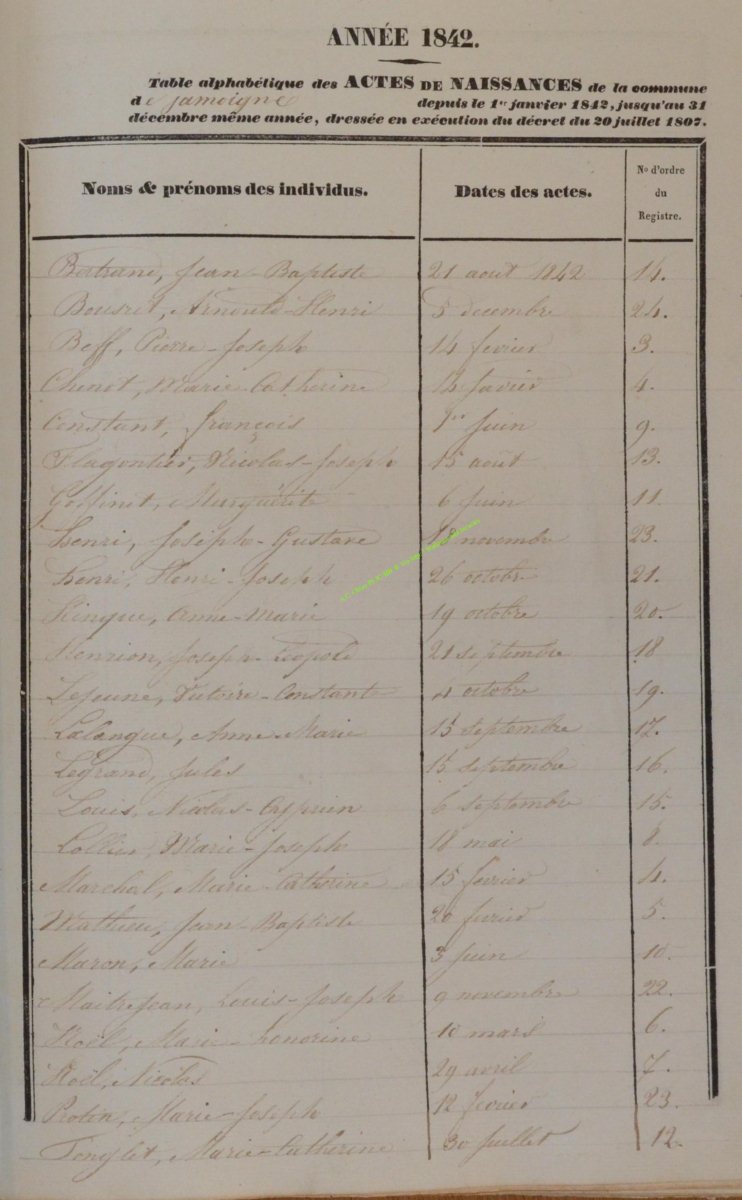 ANNÉE 1842.
Table alphabétique des ACTES DE NAISSANCES de la commune
de Jamoigne depuis le 1er janvier 1842, jusqu'au 31
décembre même année, dressée en exécution du décret du 20 juillet 1807.
Noms & prénoms des individus. Dates des actes. No d'ordre du Registre.
Bertrand, Jean-Baptiste 21 aout 1842 14.
Arnould-Henri 5 decembre 24.
Beff, Pierre-Joseph 14 fevrier 3.
Chenot, Marie-Catherine
Constant, françois 1er Juin 9.
Nicolas-Joseph 15 aout 13.
Goffinet, Marguerite 6 Juin 11.
henri, Joseph-Gustave 18 novembre 23.
henri, Henri-Joseph 26 octobre 21.
Anne-Marie 19 octobre 20.
henrion, Joseph-Leopold 21 septembre 18
Lejeune, Constant 4 octobre 19.
Lalangue, Anne-Marie 15 septembre 17.
Legrand, Jules 15 septembre 16.
Louis, Nicolas-Cyprien 6 septembre 15.
Marie-Joseph 18 mai 8.
Marchal, Marie-Catherine 15 fevrier 4.
Mathieu, Jean-Baptiste 20 fevrier 5.
Maron, Marie 3 Juin 10.
Maitrejean, Louis-Joseph 9 novembre 22.
Noël, Marie-honorine 10 mars 6.
Noël, Nicolas 29 avril 7.
Marie-Joseph 12 fevrier 23.
Tonglet, Marie-Catherine 30 Juillet 12.